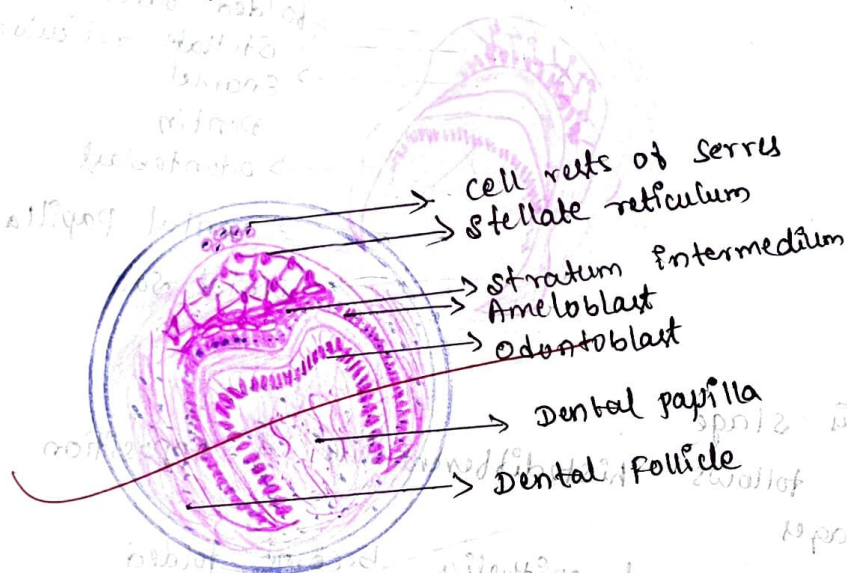 cell rests of Serres
Stellate reticulum
Stratum intermedium
Ameloblast
Odontoblast
Dental papilla
Dental Follicle